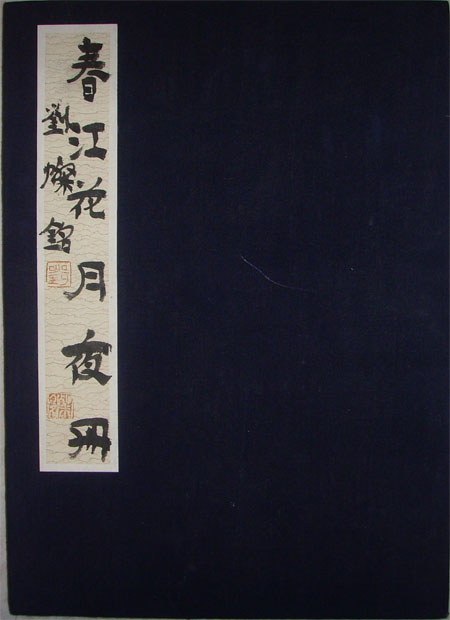 春江花月夜冊
劉燦銘